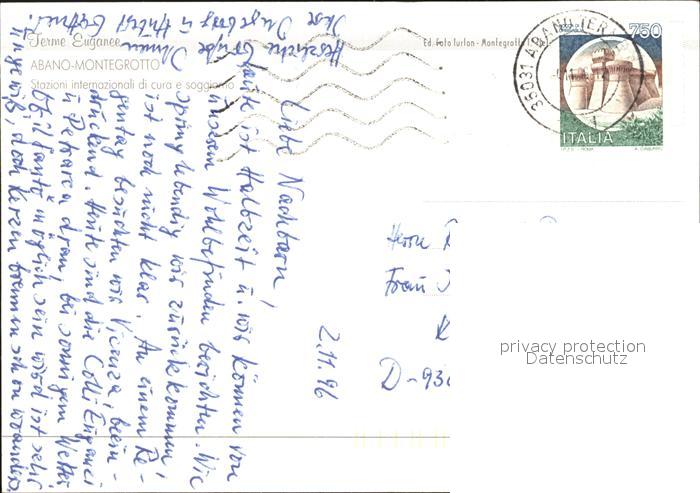 Terme Euganee
ABANO-MONTEGROTTO
Stazioni internazionali di cura e soggiorno
Ed. Foto Turlon - Montegrotto
35031 ABANO TER
750
ITALIA
2.11.96
Liebe Nachbarn!
Heute ist Halbzeit u. wir können von
unserem Wohlbefinden berichten. Wie
springlebendig wir zurückkommen,
ist noch nicht klar. An einem Re-
gentag besuchten wir Vicenza, beein-
druckend. Heute sind die Colli Euganei
u. Petrarca dran, bei sonnigem Wetter.
Ob il Santo möglich sein wird ist sehr
ungewiß, doch Kerzen brennen schon woanders.
Herzliche Grüße Ihnen
Ihre Ingeborg u.
Herrn
Frau
D-930
privacy protection
Datenschutz